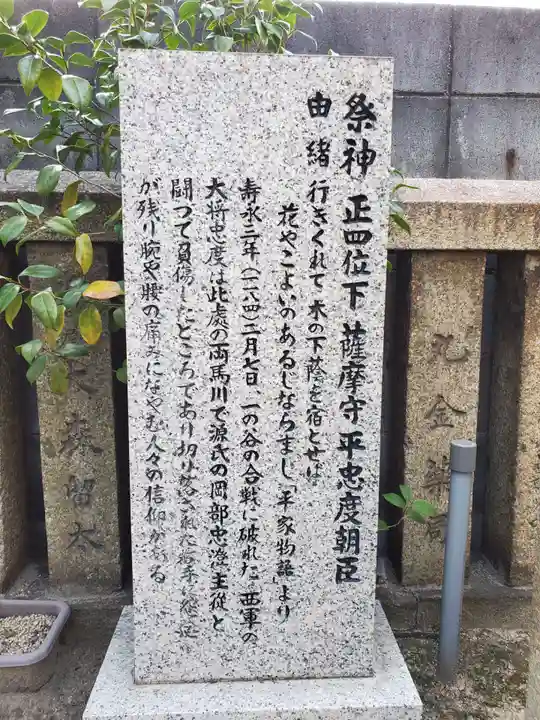 祭神 正四位下 薩摩守平忠度朝臣
由緒 行きくれて 木の下蔭を宿とせば
花やこよいのあるじならまし「平家物語」より
寿永三年(一一八四)二月七日、一の谷の合戦に破れた西軍の
大将忠度は此處の両馬川で源氏の岡部忠澄主従と
闘って負傷したところであり切り落された右手に
が残り腕や腰の痛みになやむ人々の信仰がある
丸金
大森留